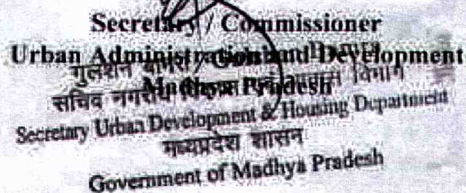 Secretary / Commissioner
Urban Administration and Development
Madhya Pradesh
गुलशन
सचिव नगरीय विकास एवं आवास विभाग
Secretary Urban Development & Housing Department
मध्यप्रदेश शासन
Government of Madhya Pradesh